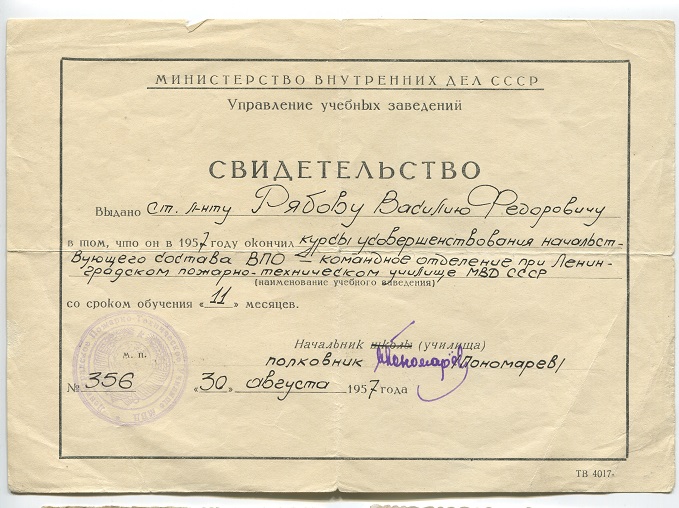 МИНИСТЕРСТВО ВНУТРЕННИХ ДЕЛ СССР
Управление учебных заведений
СВИДЕТЕЛЬСТВО
Выдано Ст. л-нту Рябову Василию Федоровичу
в том, что он в 1957 году окончил курсы усовершенствования начальст-
вующего состава ВПО — командное отделение при Ленин-
градском пожарно-техническом училище МВД СССР
(наименование учебного заведения)
со сроком обучения «11» месяцев.
Начальник школы (училища)
М. П.
полковник Пономарёв /Пономарев/
№ 356 «30» августа 1957 года
ТВ 4017-